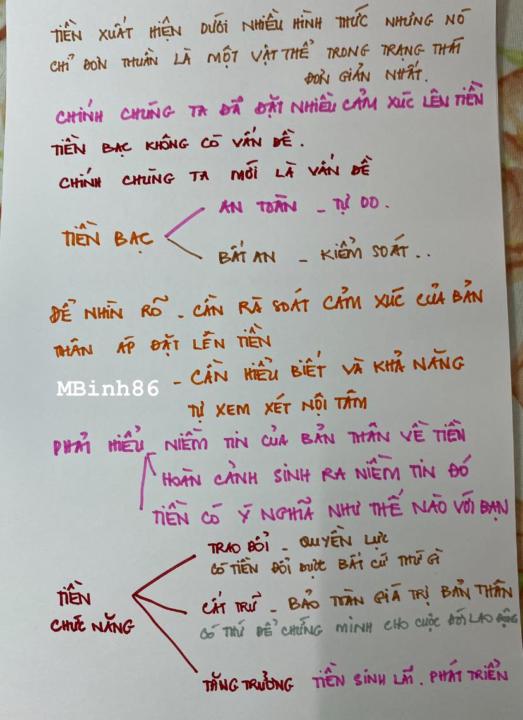 TIỀN XUẤT HIỆN DƯỚI NHIỀU HÌNH THỨC NHƯNG NÓ
CHỈ ĐƠN THUẦN LÀ MỘT VẬT THỂ TRONG TRẠNG THÁI
ĐƠN GIẢN NHẤT.
CHÍNH CHÚNG TA ĐÃ ĐẶT NHIỀU CẢM XÚC LÊN TIỀN
TIỀN BẠC KHÔNG CÓ VẤN ĐỀ.
CHÍNH CHÚNG TA MỚI LÀ VẤN ĐỀ
AN TOÀN - TỰ DO.
TIỀN BẠC
BẤT AN - KIỂM SOÁT..
ĐỂ NHÌN RÕ - CẦN RÀ SOÁT CẢM XÚC CỦA BẢN
THÂN ÁP ĐẶT LÊN TIỀN
MBinh86
- CẦN HIỂU BIẾT VÀ KHẢ NĂNG
TỰ XEM XÉT NỘI TÂM
PHẢI HIỂU - NIỀM TIN CỦA BẢN THÂN VỀ TIỀN
HOÀN CẢNH SINH RA NIỀM TIN ĐÓ
TIỀN CÓ Ý NGHĨA NHƯ THẾ NÀO VỚI BẠN
TRAO ĐỔI - QUYỀN LỰC
CÓ TIỀN ĐỔI ĐƯỢC BẤT CỨ THỨ GÌ
TIỀN
CHỨC NĂNG
CẤT TRỮ - BẢO TOÀN GIÁ TRỊ BẢN THÂN
CÓ THỨ ĐỂ CHỨNG MINH CHO CUỘC ĐỜI LAO ĐỘNG
TĂNG TRƯỞNG TIỀN SINH LÃI. PHÁT TRIỂN